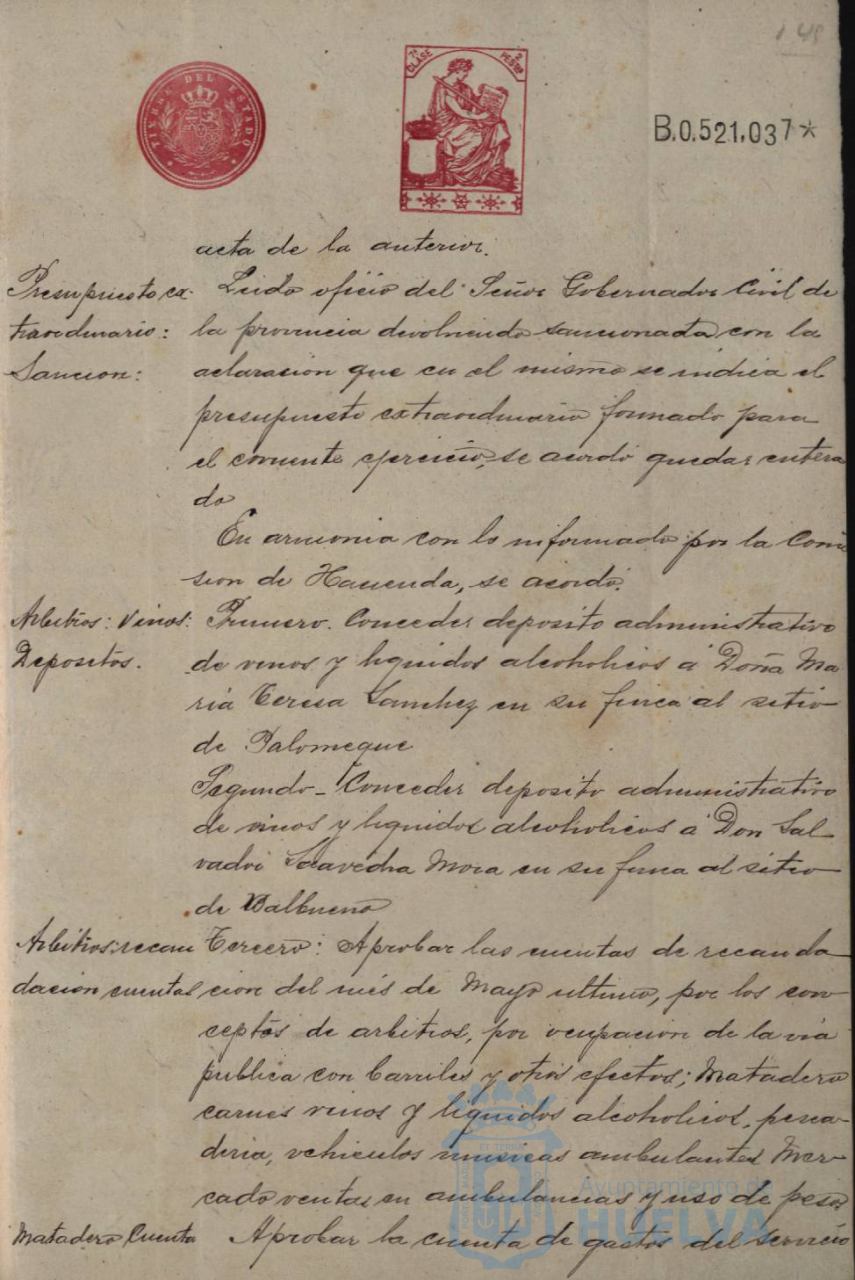 148
TIMBRE DEL ESTADO
7ª CLASE 2 PESETAS
B.0.521,037*
acta de la anterior.
Presupuesto ex- Leido oficio del Señor Gobernador Civil de
traordinario: la provincia devolviendo sancionada con la
Sancion: aclaración que en el mismo se indica el
presupuesto extraordinario formado para
el corriente ejercicio, se acordó quedar entera
do
En armonia con lo informado por la Comi
sion de Hacienda, se acordó.
Arbitrios: Vinos: Primero. Conceder deposito administrativo
Depositos. de vinos y liquidos alcoholicos á Doña Ma
ria Teresa Sanchez en su finca al sitio
de Palomeque
Segundo- Conceder deposito administrativo
de vinos y liquidos alcoholicos á Don Sal-
vador Saavedra Mora en su finca al sitio
de Balbueno
Arbitrios: recau Tercero: Aprobar las cuentas de recauda-
dacion cuentas cion del més de Mayo ultimo, por los con-
ceptos de arbitrios, por ocupacion de la via
publica con barriles y otros efectos; Matadero
carnes vinos y líquidos alcoholicos, pesca-
deria, vehiculos musicas ambulantes Mer-
cado ventas en ambulancias y uso de pesos
Matadero Cuenta Aprobar la cuenta de gastos del servicio
Ayuntamiento de
HUELVA